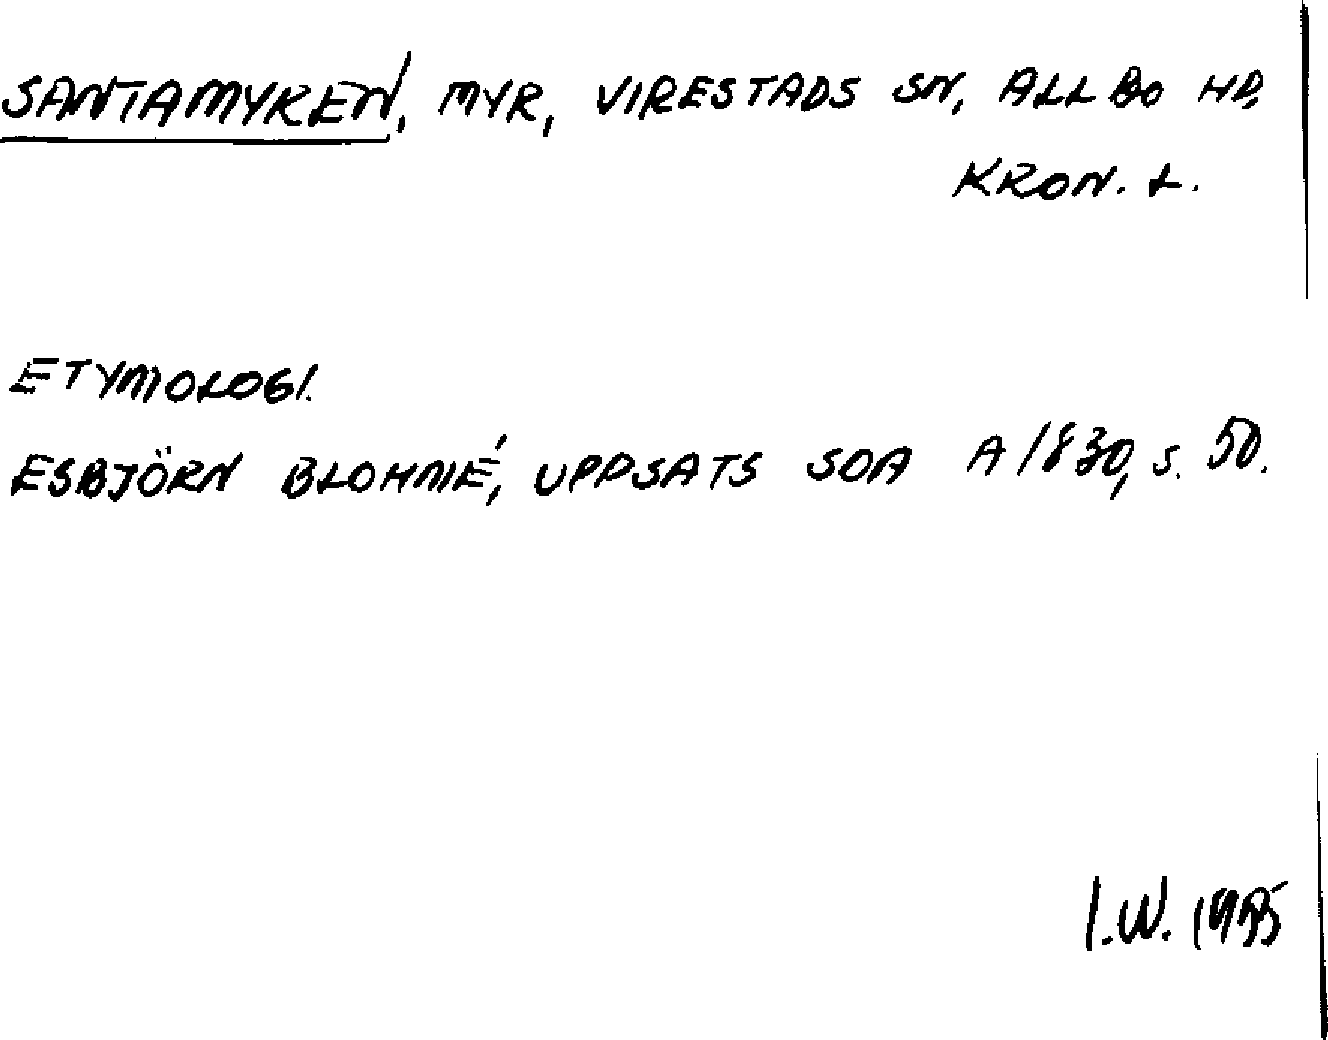 SANTAMYREN, MYR, VIRESTADS SN, ALLBO HD,
KRON. L.
ETYMOLOGI.
ESBJÖRN BLOHMÉ, UPPSATS SOA A 1830, s. 50.
I.W.